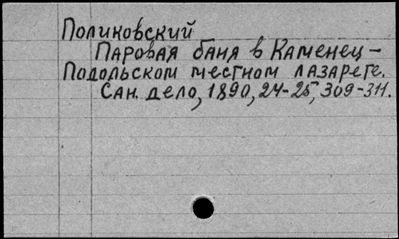 Поликовский
Паровая баня в Каменец-
Подольском местном лазарете.
Сан. дело, 1890, 24-25, 309-311.